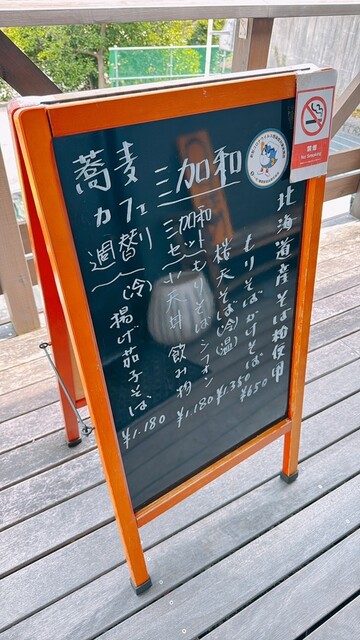 蕎麦
カフェ
三加和
北海道産そば粉使用
もりそばかけそば ¥650
桜天そば(冷)(温) ¥1.350
三加和セット
もりそば シフォン
小天丼 飲み物 ¥1.180
週替り
(冷)揚げ茄子そば ¥1.180
禁煙
No Smoking